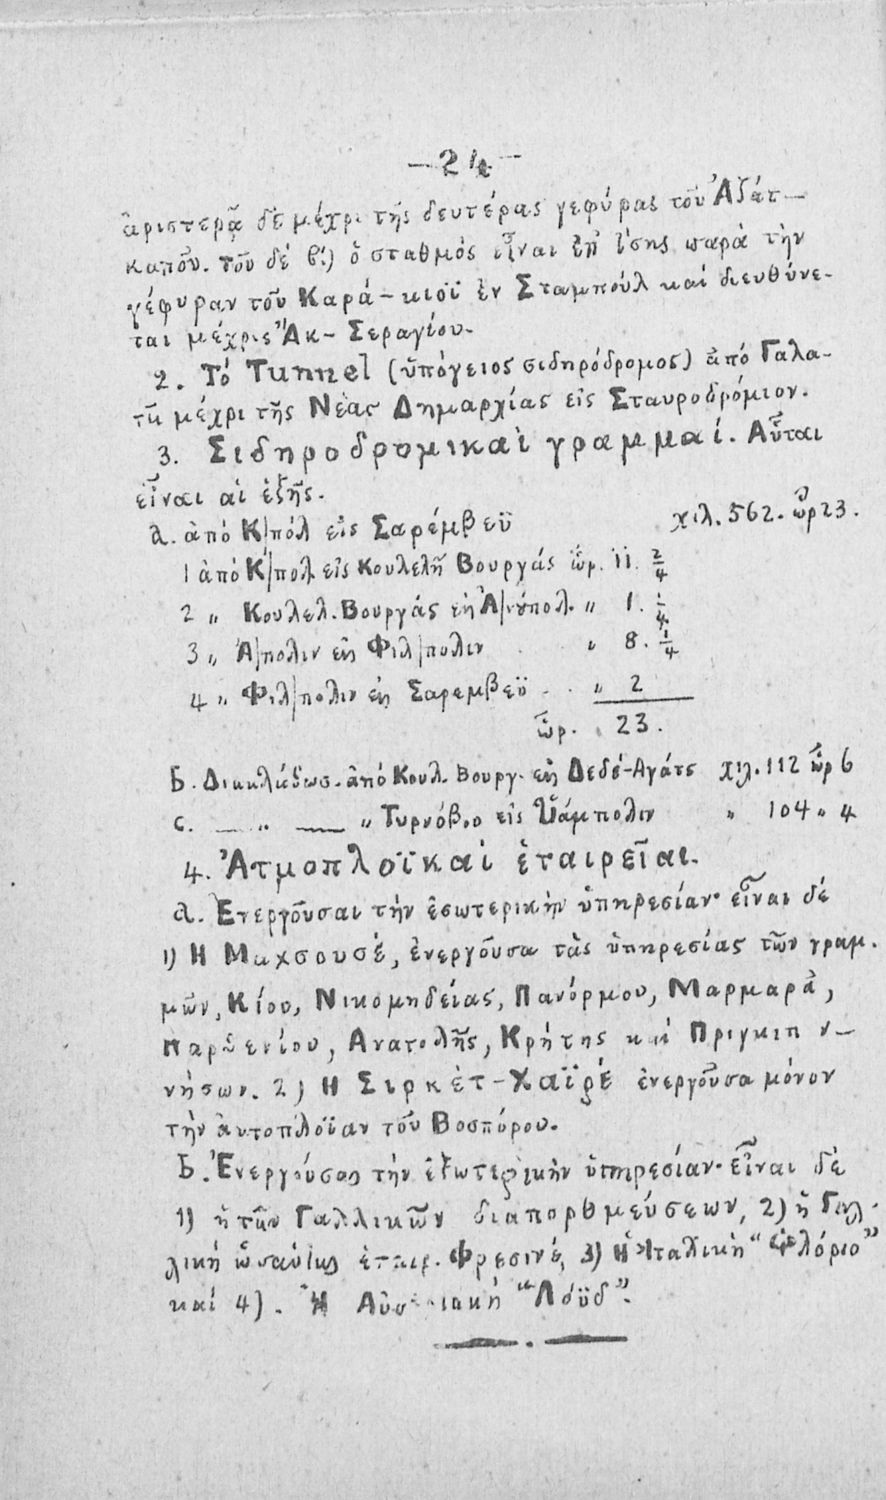 —24—
ἀριστερᾷ δὲ μέχρι τῆς δευτέρας γεφύρας τοῦ Ἀζάτ—
καποῦ. τοῦ δέ β΄.) ὁ σταθμὸς εἶναι ἐπ' ἴσης παρὰ τὴν
γέφυραν τοῦ Καρά-κιοϊ ἐν Σταμπούλ καί διευθύνε-
ται μέχρις Ἀκ-Σεραγίου.
2. Τὸ Tunnel (ὑπόγειος σιδηρόδρομος) ἀπό Γαλα-
τᾶ μέχρι τῆς Νέας Δημαρχίας εἰς Σταυροδρόμιον.
3. Σιδηροδρομικαὶ γραμμαί. Αὗται
εἶναι αἱ ἑξῆς.
a. ἀπό Κ/πόλ εἰς Σαρέμβεϋ χιλ. 562. ὧρ 23.
1 ἀπό Κ/πολ εἰς Κουλελῆ Βουργάς ὧρ. 11. 2/4
2 „ Κουλελ. Βουργάς εἰς Ἀ/νόπολ. „ 1. 1/4
3 „ Ἀ/πολιν εἰς Φιλ/πολιν „ 8. 1/4
4 „ Φιλ/πολιν εἰς Σαρεμβεϋ . . „ 2
ὧρ. 23.
b. Διακλάδωσ. ἀπό Κουλ. Βουργ. εἰς Δεδέ-Αγάτς χιλ. 112 ὧρ 6
c. — „ — „ Τυρνόβ.ο εἰς Ὑάμπολιν „ 104 „ 4
4. Ἀτμοπλοϊκαὶ ἑταιρεῖαι.
a. Ἐνεργοῦσαι τὴν ἐσωτερικὴν ὑπηρεσίαν· εἶναι δέ
1) Η Μαχσουσέ, ἐνεργοῦσα τὰς ὑπηρεσίας τῶν γραμ.
μῶν, Κίου, Νικομηδείας, Πανόρμου, Μαρμαρᾶ,
Παρθενίου, Ανατολῆς, Κρήτης καί Πριγκιπ ν—
νήσων. 2) Η Σιρκὲτ-Χαϊρέ ἐνεργοῦσα μόνον
τὴν ἀκτοπλοΐαν τοῦ Βοσπόρου.
b. Ἐνεργοῦσαι τὴν ἐξωτερικὴν ὑπηρεσίαν· εἶναι δὲ
1) ἡ τῶν Γαλλικῶν διαπορθμεύσεων, 2) ἡ Γαλ-
λική ὡσαύτως ἑταιρ. Φρεσινέ, 3) Ἡ Ἰταλικὴ “Φλόριο”
καί 4). Ἡ Αὐσ ιακή “Λόϋδ”.